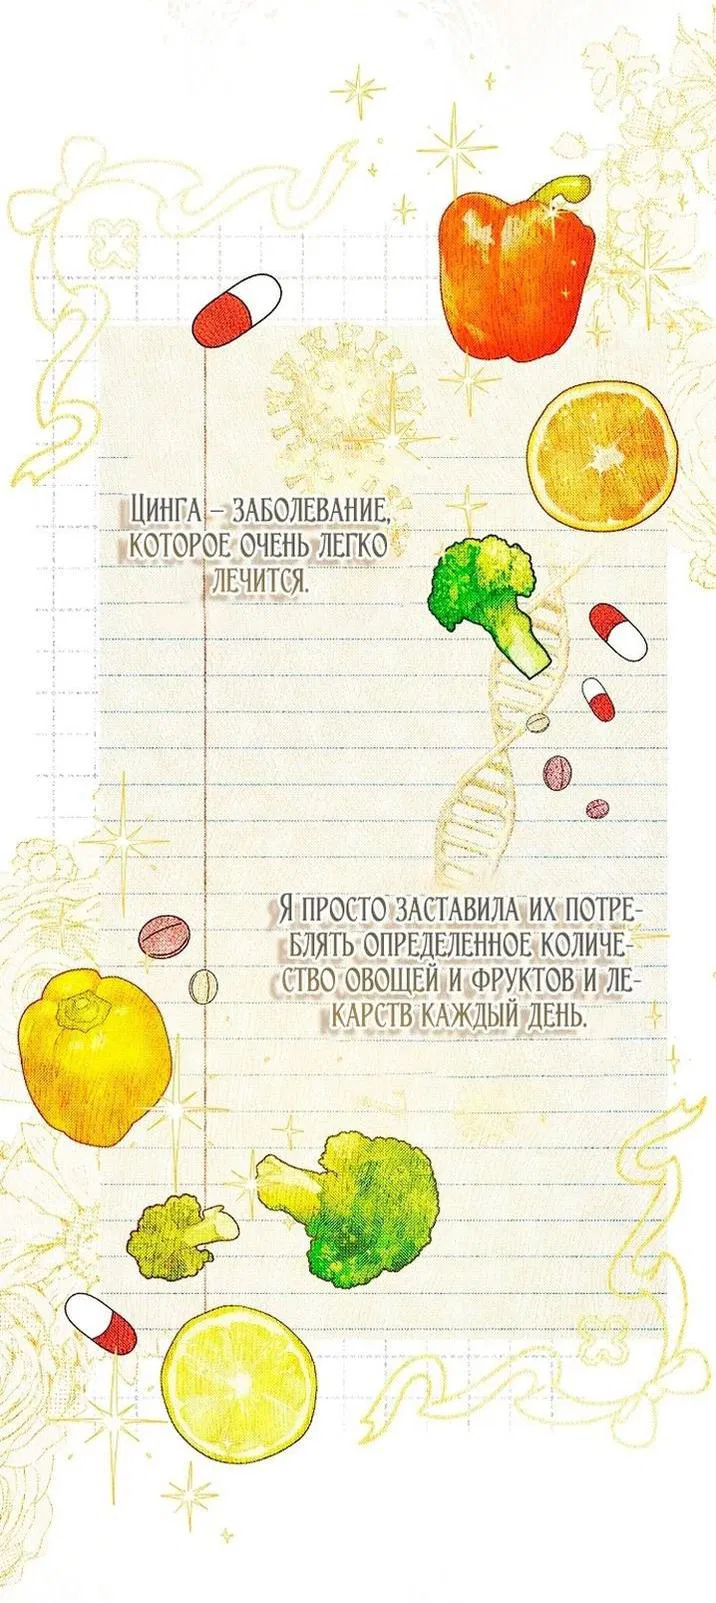 Цинга – заболевание,
которое очень легко
лечится.
Я просто заставила их потре-
блять определенное количе-
ство овощей и фруктов и ле-
карств каждый день.